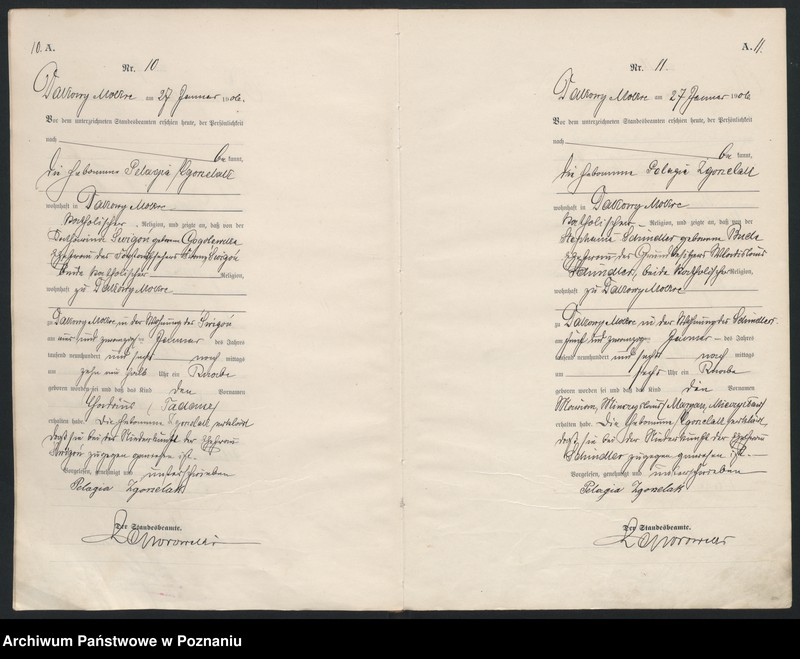 10. A.
Nr. 10
Dakowy Mokre am 27 Januar 1906.
Vor dem unterzeichneten Standesbeamten erschien heute, der Persönlichkeit
nach
be kannt,
die Hebamme Pelagia Zgonelak
wohnhaft in Dakowy Mokre
katholischer Religion, und zeigte an, daß von der
geborene
Ehefrau des
beide katholischer Religion,
wohnhaft zu Dakowy Mokre
zu Dakowy Mokre, in der Wohnung des
am ein und zwanzigsten Januar des Jahres
tausend neunhundert und sechs nach mittags
um zehn ein halb Uhr ein Knabe
geboren worden sei und daß das Kind den Vornamen
(Tadeusz)
erhalten habe. Die Hebamme Zgonelak erklärt
daß sie bei der Niederkunft der Ehefrau
zugegen gewesen ist.
Vorgelesen, genehmigt und unterschrieben
Pelagia Zgonelak
Der Standesbeamte.
A. 11.
Nr. 11.
Dakowy Mokre am 27 Januar 1906
Vor dem unterzeichneten Standesbeamten erschien heute, der Persönlichkeit
nach
be kannt,
die Hebamme Pelagia Zgonelak
wohnhaft in Dakowy Mokre
katholischer Religion, und zeigte an, daß von der
Stephania Schindler geborene
Ehefrau des Grundbesitzers Wladislaus
Schindler, beide katholischer Religion,
wohnhaft zu Dakowy Mokre
zu Dakowy Mokre in der Wohnung des Schindler
am fünf und zwanzigsten Januar des Jahres
tausend neunhundert und sechs nach mittags
um sechs Uhr ein Knabe
geboren worden sei und daß das Kind den Vornamen
erhalten habe. Die Hebamme Zgonelak erklärt,
daß sie bei der Niederkunft der Ehefrau
Schindler zugegen gewesen ist.
Vorgelesen, genehmigt und unterschrieben
Pelagia Zgonelak
Der Standesbeamte.
Archiwum Państwowe w Poznaniu